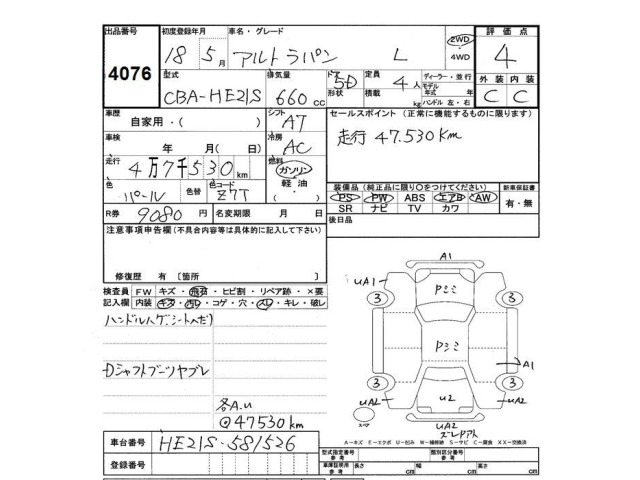 出品番号 初度登録年月 車名・グレード 評価点
4076 18年5月 アルトラパン L 2WD 4WD 4
型式 排気量 ドア形状 定員 ディーラー・並行 外装 内装
CBA-HE21S 660cc 5D 積載 4人 kg モデル年式 年 ハンドル 左・右 C C
車歴 シフト セールスポイント(正常に機能するものに限ります)
自家用・( ) AT
走行 47.530Km
車検 年 月( ) 冷房 AC
走行 4万7千530km 燃料 ガソリン 軽油
色 パール 色替 色コード Z7T
装備品(純正品に限り○をつけてください) 新車保証書
PS PW ABS エアB AW 有・無
SR ナビ TV カワ
R券 9080円 名変期限 月 日
後日品
注意事項申告欄(不具合内容等は具体的に記入して下さい)
修復歴 有[箇所 ]
検査員記入欄 FW キズ・飛石・ヒビ割・リペア跡・×要
内装 キズ・汚レ・コゲ・穴・スレ・キレ・破レ
ハンドルハゲ シートヘタリ
Dシャフトブーツヤブレ
各A.U
@47530km
A1
UA1 Pシミ
3 3
Pシミ
A1
3 3
UA2 U2 UA2
スペア UA2
ズレアト
A-キズ E-エクボ U-凹み W-補修跡 S-サビ C-腐食 XX-交換済
車台番号 HE21S-581526
登録番号
型式指定番号 参考 類別区分番号 参考
車庫証明用 参考 長さ cm 幅 cm 高さ cm